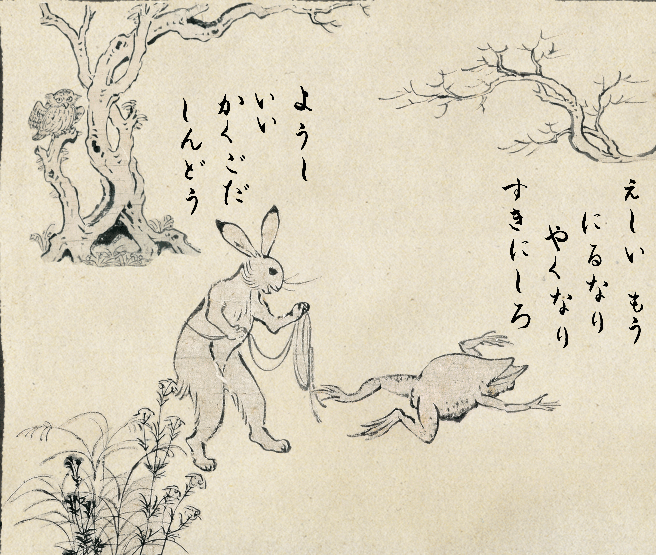 えしい もう
にるなり
やくなり
すきにしろ
ようし
いい
かくごだ
しんどう